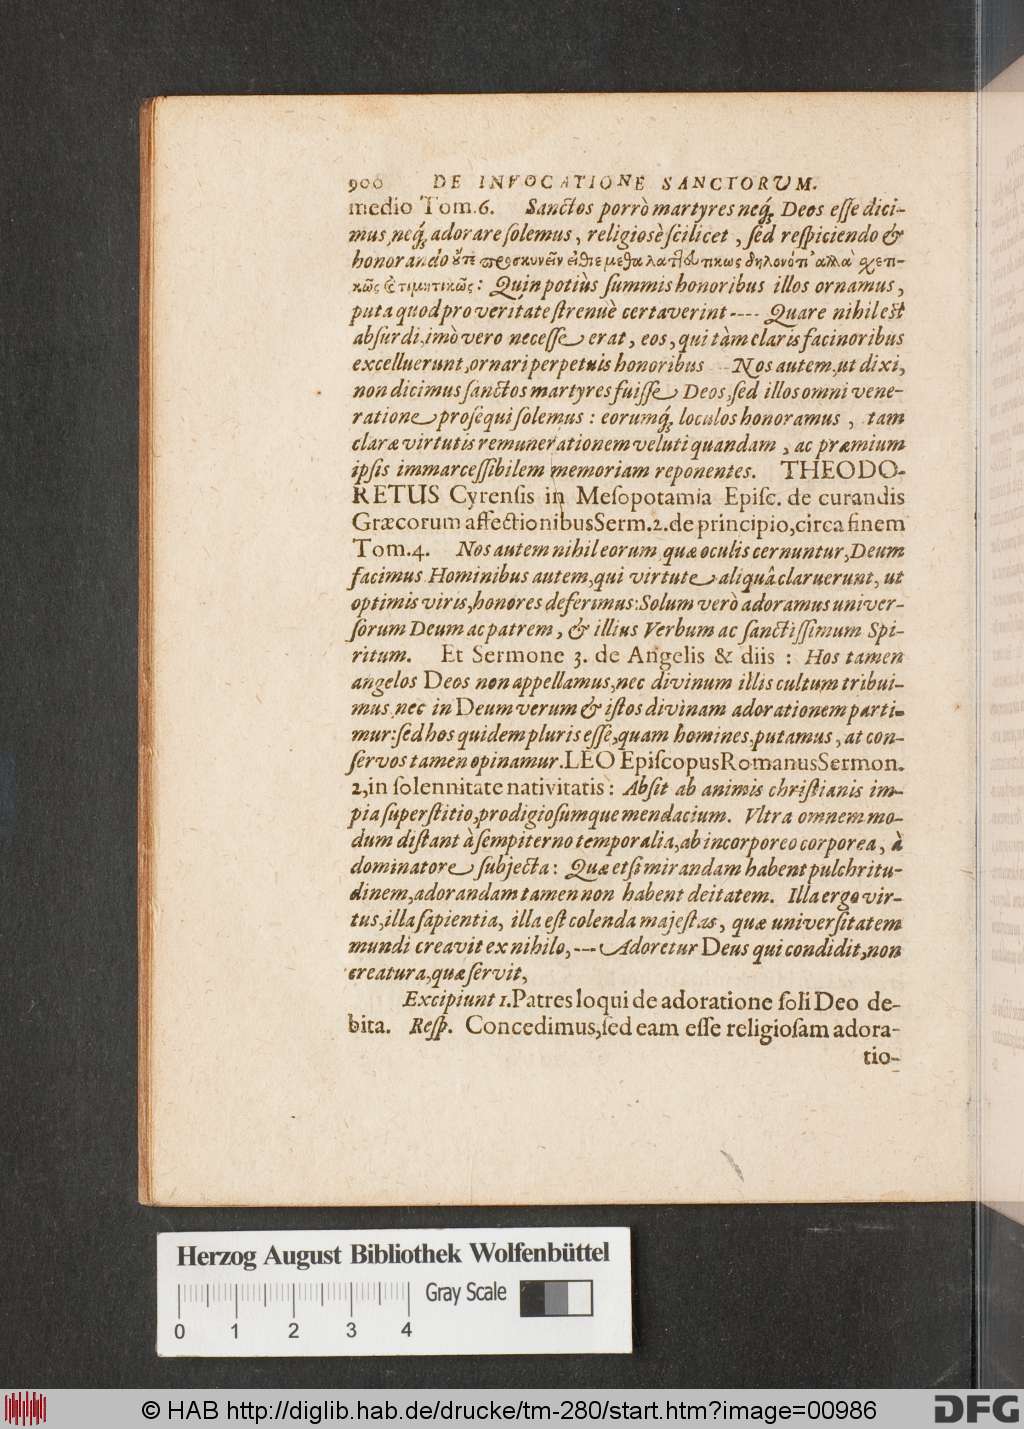 900 DE INVOCATIONE SANCTORUM.
medio Tom.6. Sanctos porrò martyres neq́; Deos esse dici-
mus, neq́; adorare solemus, religiosè scilicet, sed respiciendo &
honorando
Quin potiùs summis honoribus illos ornamus,
puta quod pro veritate strenuè certaverint ---- Quare nihil est
absurdi, imò vero necesse erat, eos, qui tàm claris facinoribus
excelluerunt, ornari perpetuis honoribus -- Nos autem, ut dixi,
non dicimus sanctos martyres fuisse Deos, sed illos omni vene-
ratione prosequi solemus: eorumq́; loculos honoramus, tam
claræ virtutis remunerationem veluti quandam, ac præmium
ipsis immarcessibilem memoriam reponentes. THEODO-
RETUS Cyrensis in Mesopotamia Episc. de curandis
Græcorum affectionibus Serm.2. de principio, circa finem
Tom.4. Nos autem nihil eorum quæ oculis cernuntur, Deum
facimus Hominibus autem, qui virtute aliquâ claruerunt, ut
optimis viris, honores deferimus: Solum verò adoramus univer-
sorum Deum ac patrem, & illius Verbum ac sanctissimum Spi-
ritum. Et Sermone 3. de Angelis & diis: Hos tamen
angelos Deos non appellamus, nec divinum illis cultum tribui-
mus nec in Deum verum & istos divinam adorationem parti-
mur: sed hos quidem pluris esse, quam homines, putamus, at con-
servos tamen opinamur. LEO Episcopus Romanus Sermon.
2, in solennitate nativitatis: Absit ab animis christianis im-
pia superstitio, prodigiosumque mendacium. Vltra omnem mo-
dum distant à sempiterno temporalia, ab incorporeo corporea, à
dominatore subjecta: Quæ etsi mirandam habent pulchritu-
dinem, adorandam tamen non habent deitatem. Illa ergo vir-
tus, illa sapientia, illa est colenda majestas, quæ universitatem
mundi creavit ex nihilo, --- Adoretur Deus qui condidit, non
creatura, quæ servit,
Excipiunt 1. Patres loqui de adoratione soli Deo de-
bita. Resp. Concedimus, sed eam esse religiosam adora-
tio-
Herzog August Bibliothek Wolfenbüttel
Gray Scale
0 1 2 3 4
© HAB http://diglib.hab.de/drucke/tm-280/start.htm?image=00986
DFG